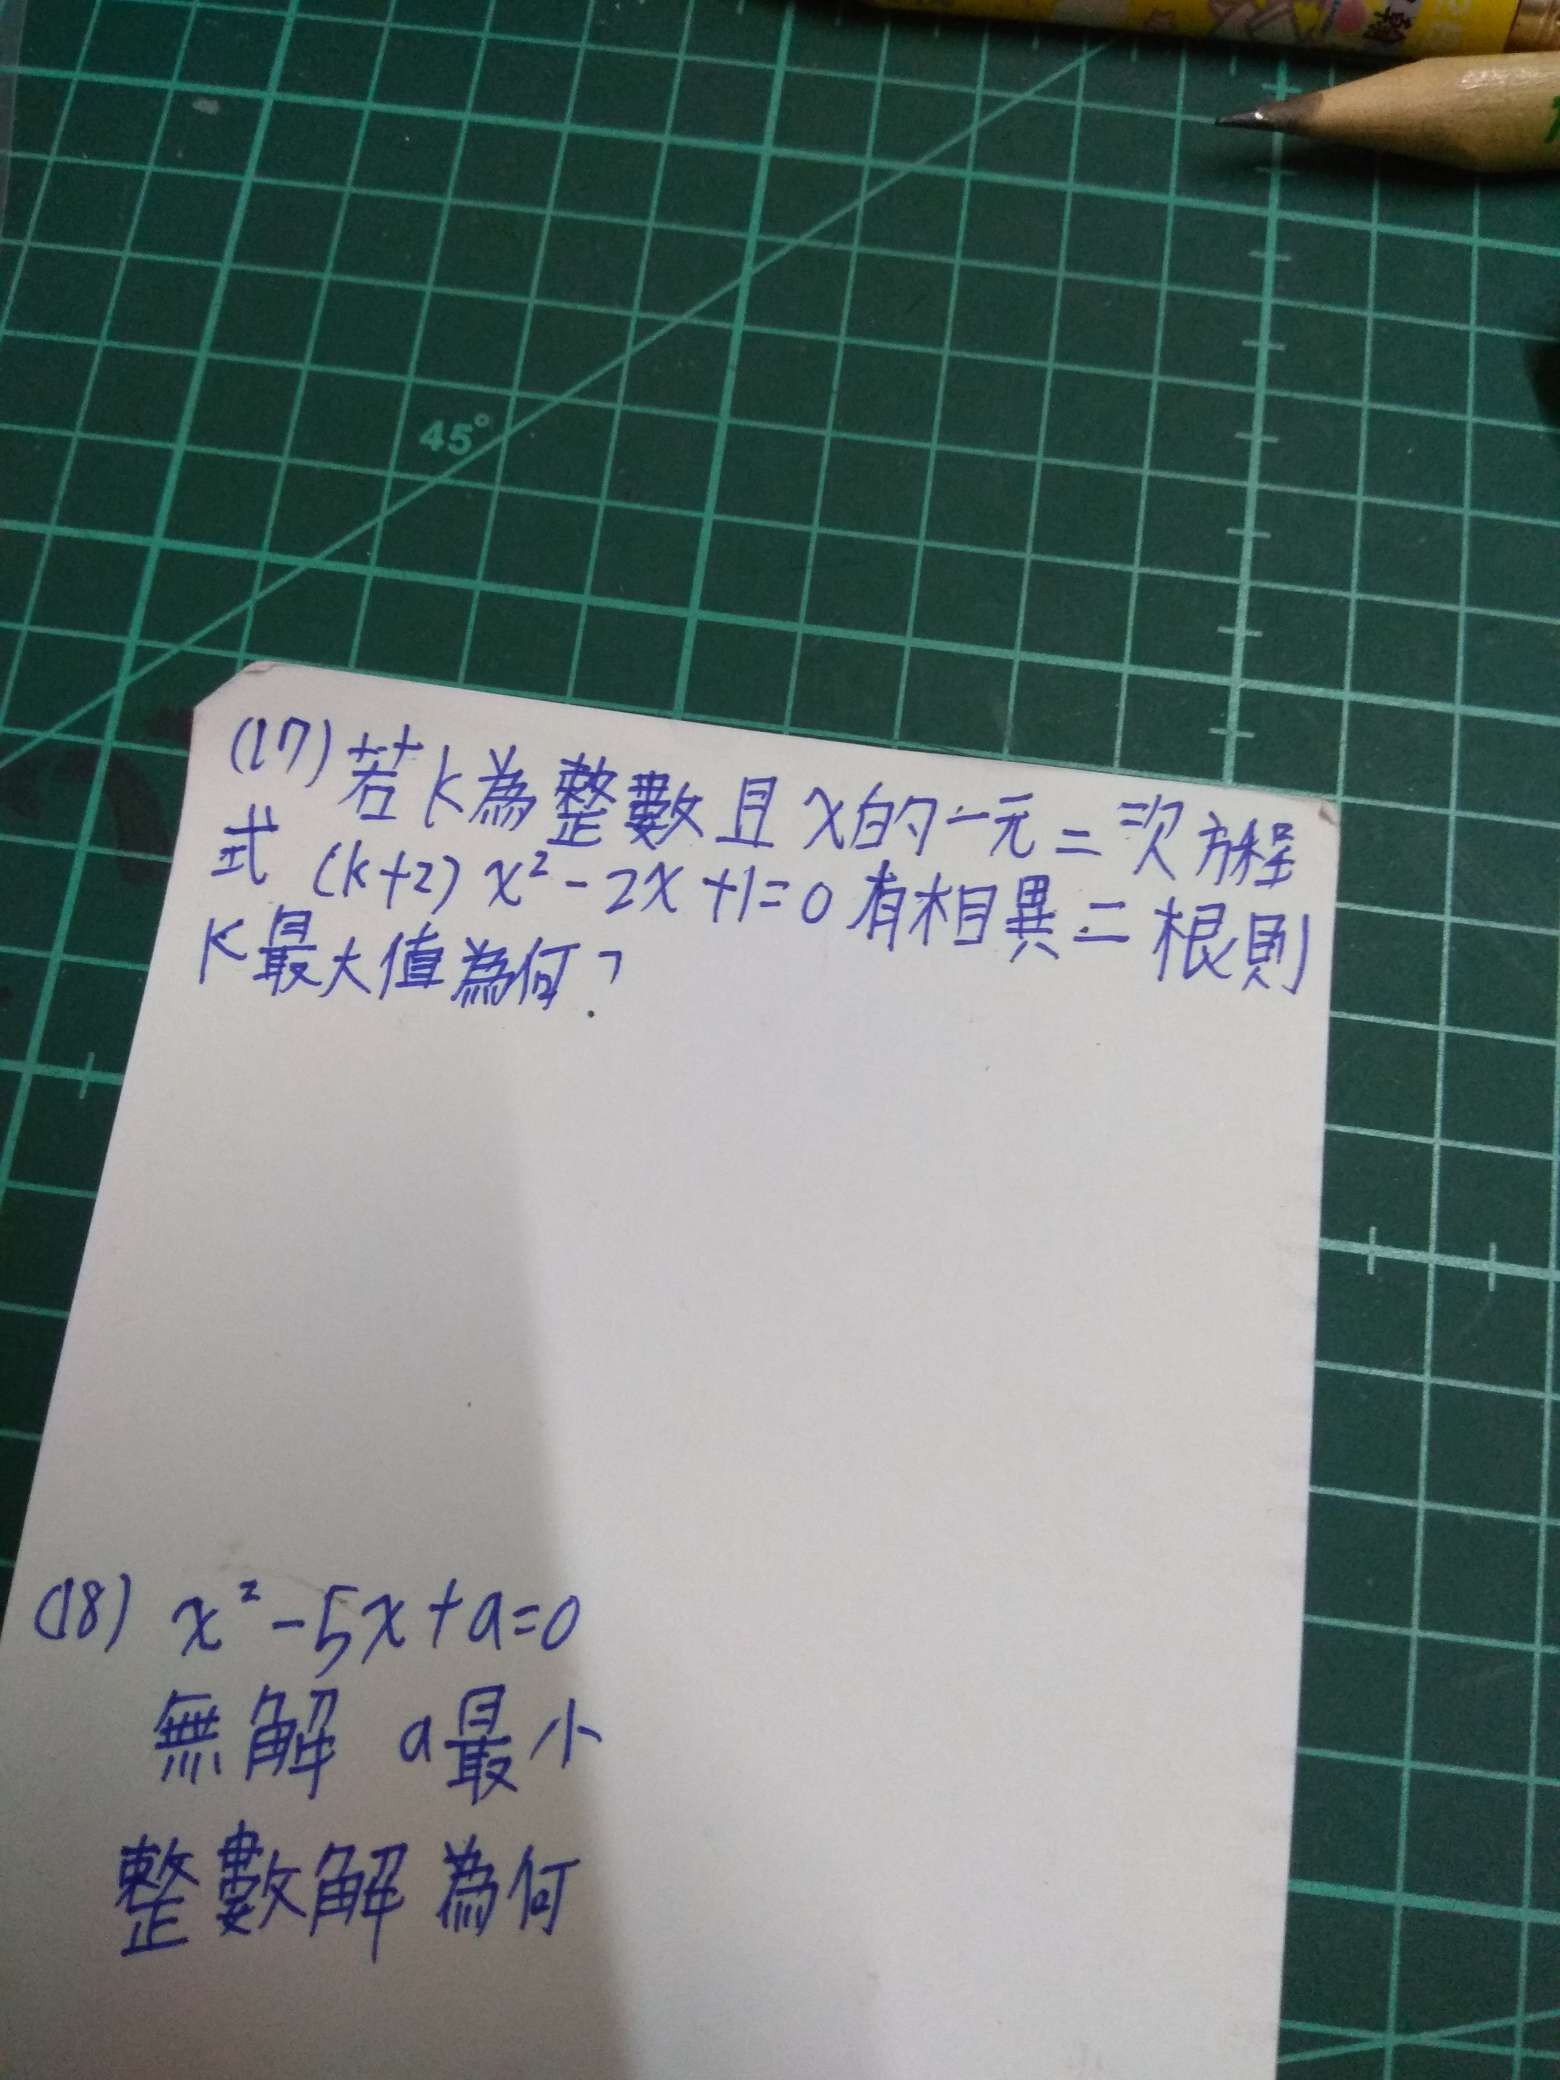 45°
(17) 若k為整數且x的一元二次方程
式 (k+2) x² - 2x + 1 = 0 有相異二根則
k最大值為何?
(18) x² - 5x + a = 0
無解 a最小
整數解為何